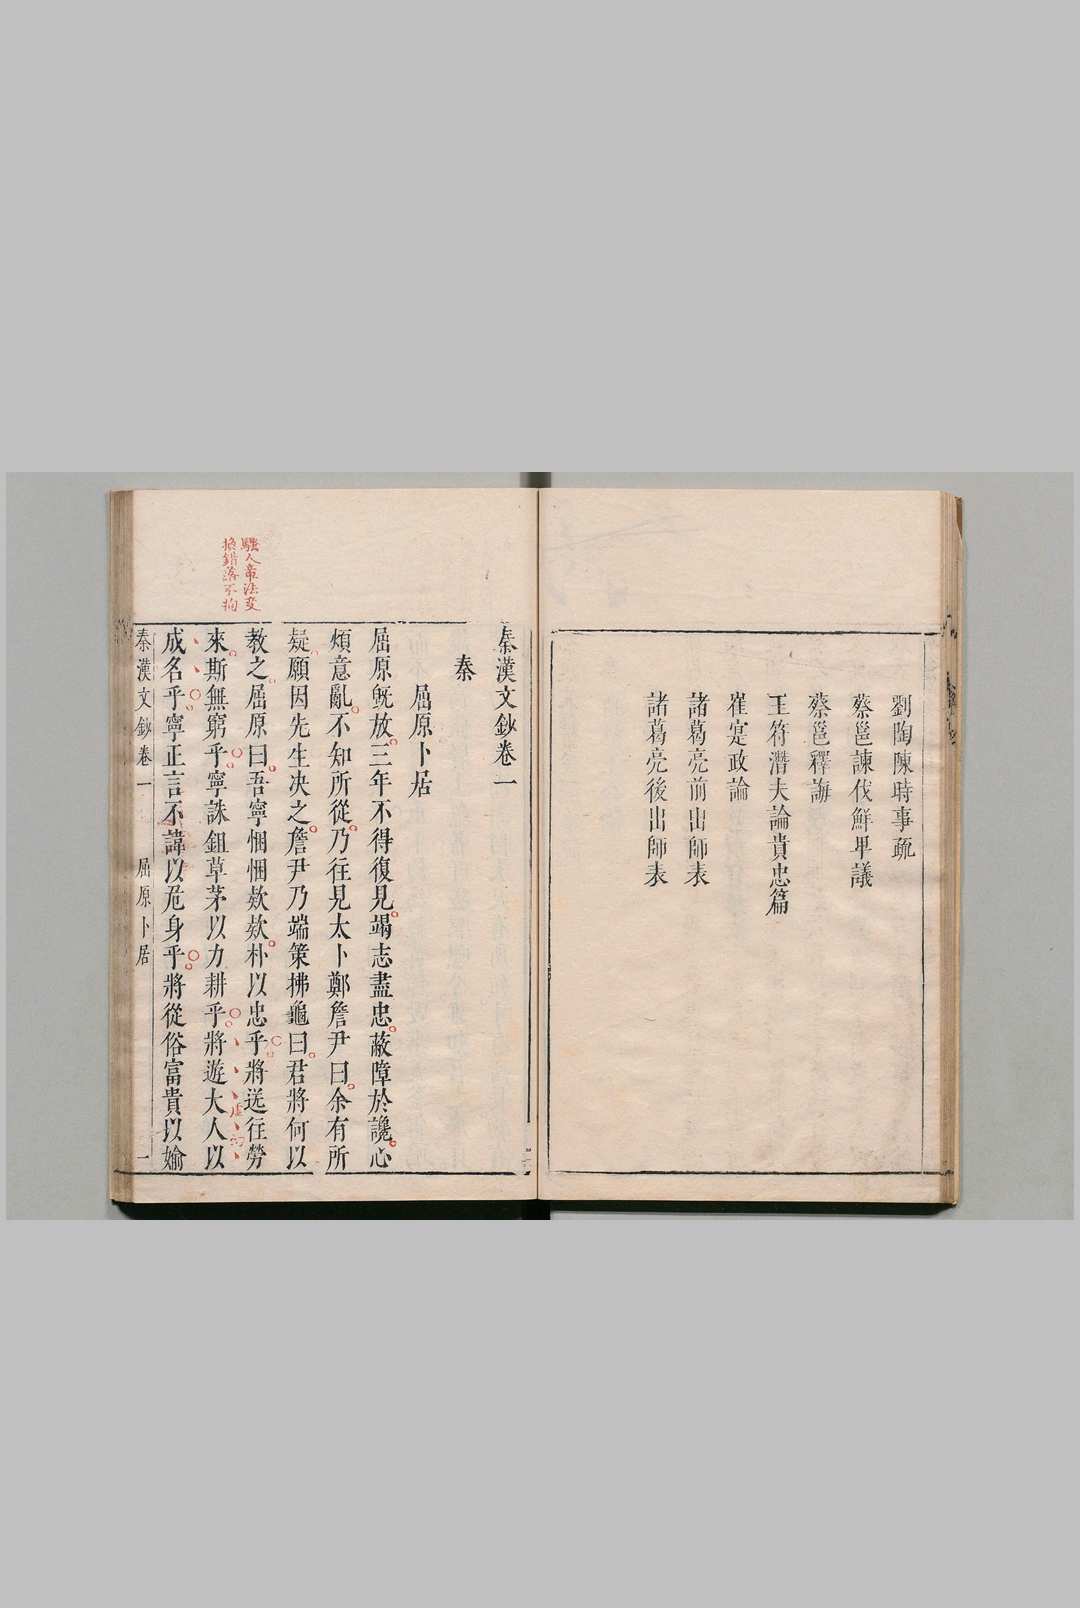 劉陶陳時事疏
蔡邕諫伐鮮卑議
蔡邕釋誨
王符潛夫論貴忠篇
崔寔政論
諸葛亮前出師表
諸葛亮後出師表
秦漢文鈔卷一
秦
屈原卜居
屈原旣放三年不得復見竭志盡忠蔽障於讒心
煩意亂不知所從乃往見太卜鄭詹尹曰余有所
疑願因先生决之詹尹乃端策拂龜曰君將何以
教之屈原曰吾寧悃悃欵欵朴以忠乎將送往勞
來斯無窮乎寧誅鉏草茅以力耕乎將遊大人以
成名乎寧正言不諱以危身乎將從俗富貴以媮
秦漢文鈔卷一 屈原卜居 一
騷人章法变
換錯落不拘